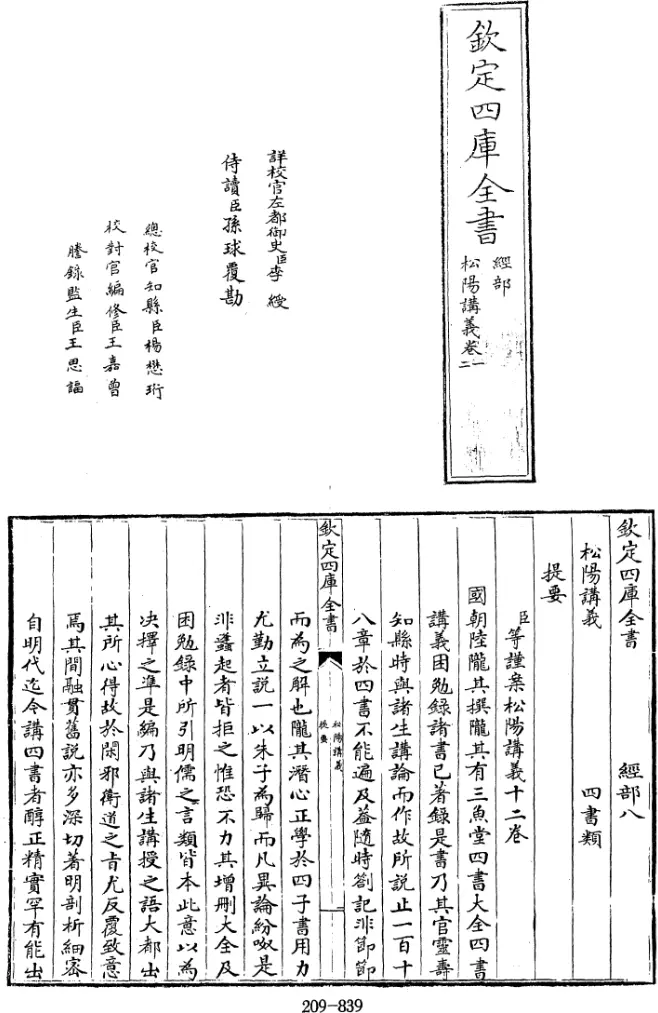 欽定四庫全書
經部
松陽講義卷一
二
詳校官左都御史臣李綬
侍讀臣孫球覆勘
總校官知縣臣楊懋珩
校對官編修臣王嘉曾
謄錄監生臣王思謳
欽定四庫全書
經部八
松陽講義
四書類
提要
臣等謹案松陽講義十二卷
國朝陸隴其撰隴其有三魚堂四書大全四書
講義困勉錄諸書已著錄是書乃其官靈壽
知縣時與諸生講論而作故所說止一百十
八章於四書不能遍及蓋隨時劄記非節節
欽定四庫全書
松陽講義
提要
一
而為之解也隴其潛心正學於四子書用力
尤勤立說一以朱子為歸而凡異論紛呶是
非蠭起者皆拒之惟恐不力其增刪大全及
困勉錄中所引明儒之言類皆本此意以為
決擇之準是編乃與諸生講授之語大都出
其所心得故於閑邪衛道之旨尤反覆致意
焉其間融貫舊說亦多深切著明剖析細密
自明代迄今講四書者醇正精實罕有能出
209-839